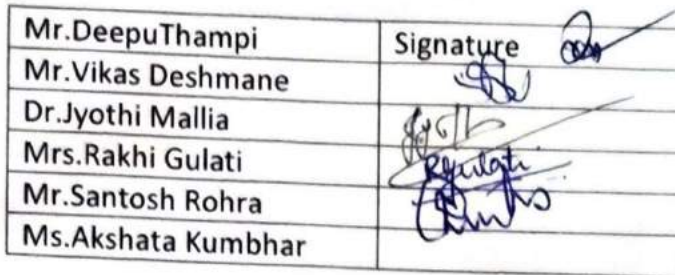 Mr.DeepuThampi Signature
Mr.Vikas Deshmane
Dr.Jyothi Mallia
Mrs.Rakhi Gulati Rgulati
Mr.Santosh Rohra
Ms.Akshata Kumbhar